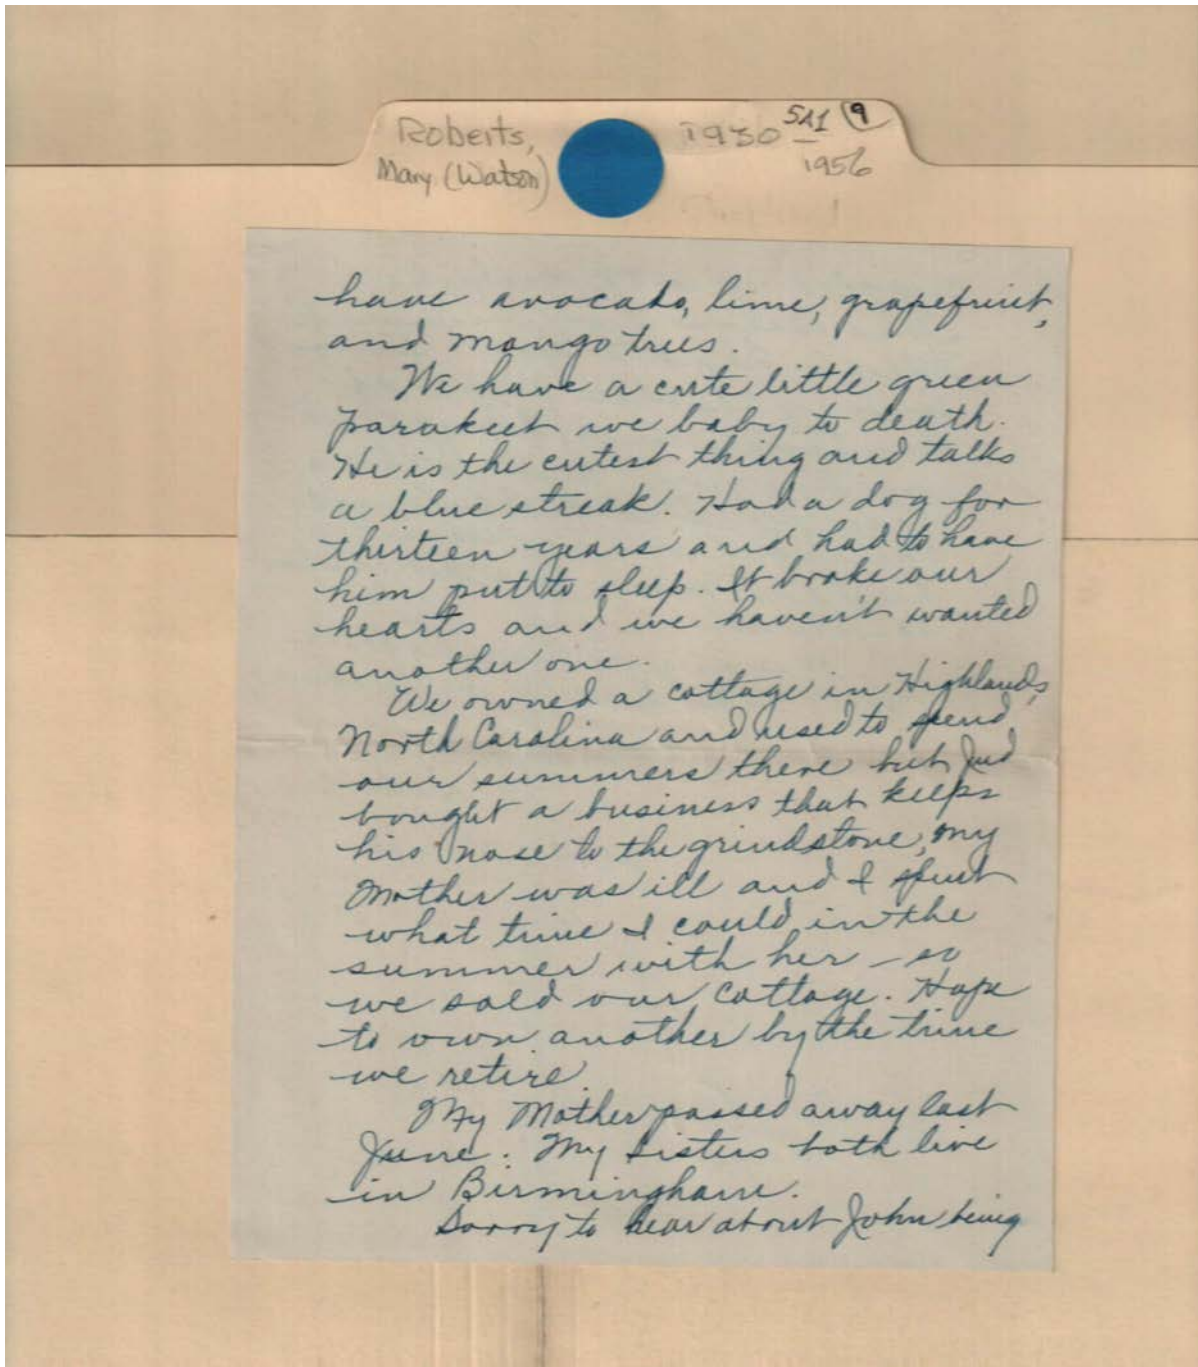 Roberts,
Mary (Watson)
1930 — 1956
SA1 9
have avocado, lime, grapefruit,
and mango trees.
We have a cute little green
parakeet we baby to death.
He is the cutest thing and talks
a blue streak. Had a dog for
thirteen years and had to have
him put to sleep. It broke our
hearts and we haven't wanted
another one.
We owned a cottage in Highlands,
North Carolina and used to spend
our summers there but Jud
bought a business that keeps
his nose to the grindstone, my
Mother was ill and I spent
what time I could in the
summer with her — so
we sold our cottage. Hope
to own another by the time
we retire.
My Mother passed away last
June. My sisters both live
in Birmingham.
Sorry to hear about John being